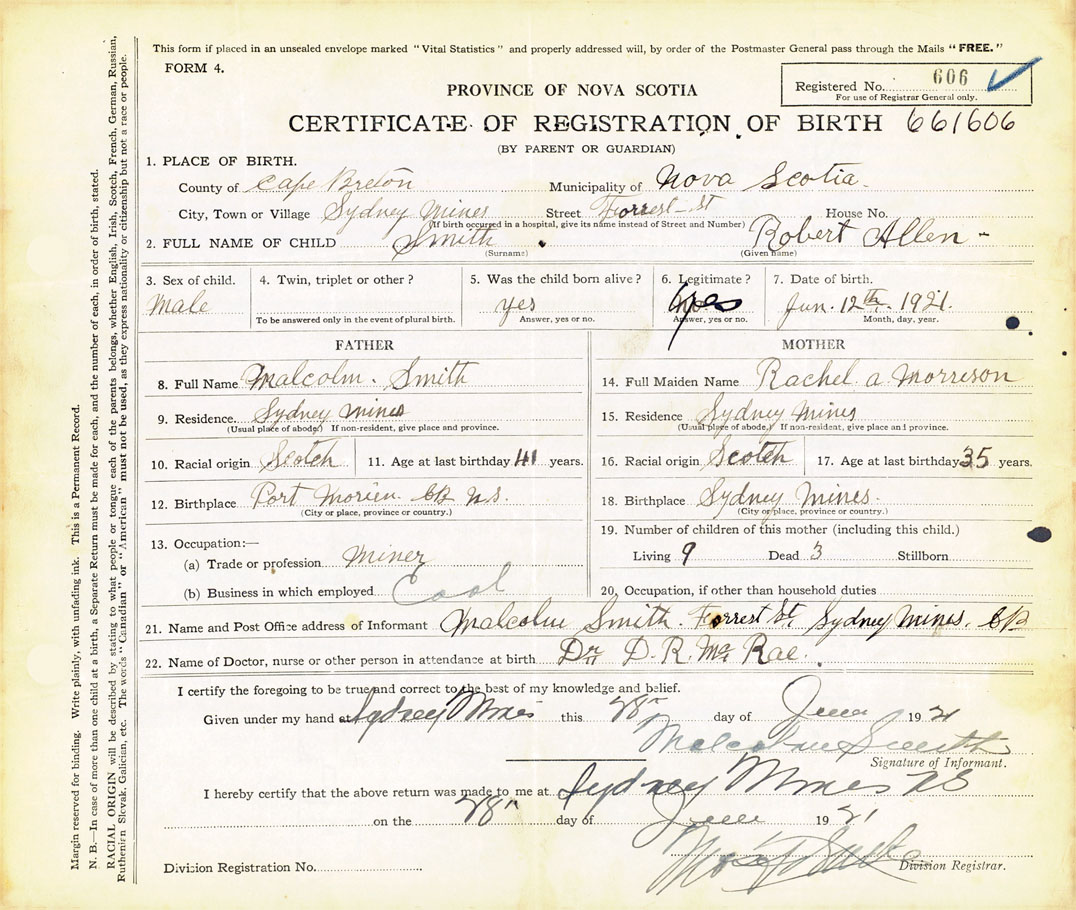 This form if placed in an unsealed envelope marked "Vital Statistics" and properly addressed will, by order of the Postmaster General pass through the Mails "FREE."
FORM 4.
Registered No. 606
For use of Registrar General only.
PROVINCE OF NOVA SCOTIA
CERTIFICATE OF REGISTRATION OF BIRTH 661606
(BY PARENT OR GUARDIAN)
1. PLACE OF BIRTH.
County of Cape Breton Municipality of Nova Scotia
City, Town or Village Sydney Mines Street Forrest St House No.
(If birth occurred in a hospital, give its name instead of Street and Number)
2. FULL NAME OF CHILD Smith Robert Allen
(Surname) (Given name)
3. Sex of child. 4. Twin, triplet or other? 5. Was the child born alive? 6. Legitimate? 7. Date of birth.
Male yes yes Jun. 12th. 1921.
To be answered only in the event of plural birth. Answer, yes or no. Answer, yes or no. Month, day, year.
FATHER MOTHER
8. Full Name Malcolm. Smith 14. Full Maiden Name Rachel a. Morrison
9. Residence. Sydney Mines 15. Residence Sydney Mines
(Usual place of abode) If non-resident, give place and province. (Usual place of abode) If non-resident, give place and province.
10. Racial origin Scotch 11. Age at last birthday 41 years. 16. Racial origin Scotch 17. Age at last birthday 35 years.
12. Birthplace Port Morien. CB N.S. 18. Birthplace Sydney Mines.
(City or place, province or country.) (City or place, province or country.)
13. Occupation:— 19. Number of children of this mother (including this child.)
(a) Trade or profession Miner Living 9 Dead 3 Stillborn
(b) Business in which employed Coal 20. Occupation, if other than household duties
21. Name and Post Office address of Informant Malcolm Smith. Forrest St. Sydney Mines. CB
22. Name of Doctor, nurse or other person in attendance at birth Dr. D. R. Mc Rae.
I certify the foregoing to be true and correct to the best of my knowledge and belief.
Given under my hand at Sydney Mines this 28th day of June 1921
Malcolm Smith
Signature of Informant.
I hereby certify that the above return was made to me at Sydney Mines NS
on the 28th day of June 1921
Division Registration No. Division Registrar.
Margin reserved for binding. Write plainly, with unfading ink. This is a Permanent Record.
N. B.—In case of more than one child at a birth, a Separate Return must be made for each, and the number of each, in order of birth, stated.
RACIAL ORIGIN will be described by stating to what people or tongue each of the parents belongs, whether English, Irish, Scotch, French, German, Russian,
Ruthenirn Slovak. Galician, etc. The words "Canadian" or "American" must not be used, as they express nationality or citizenship but not a race or people.